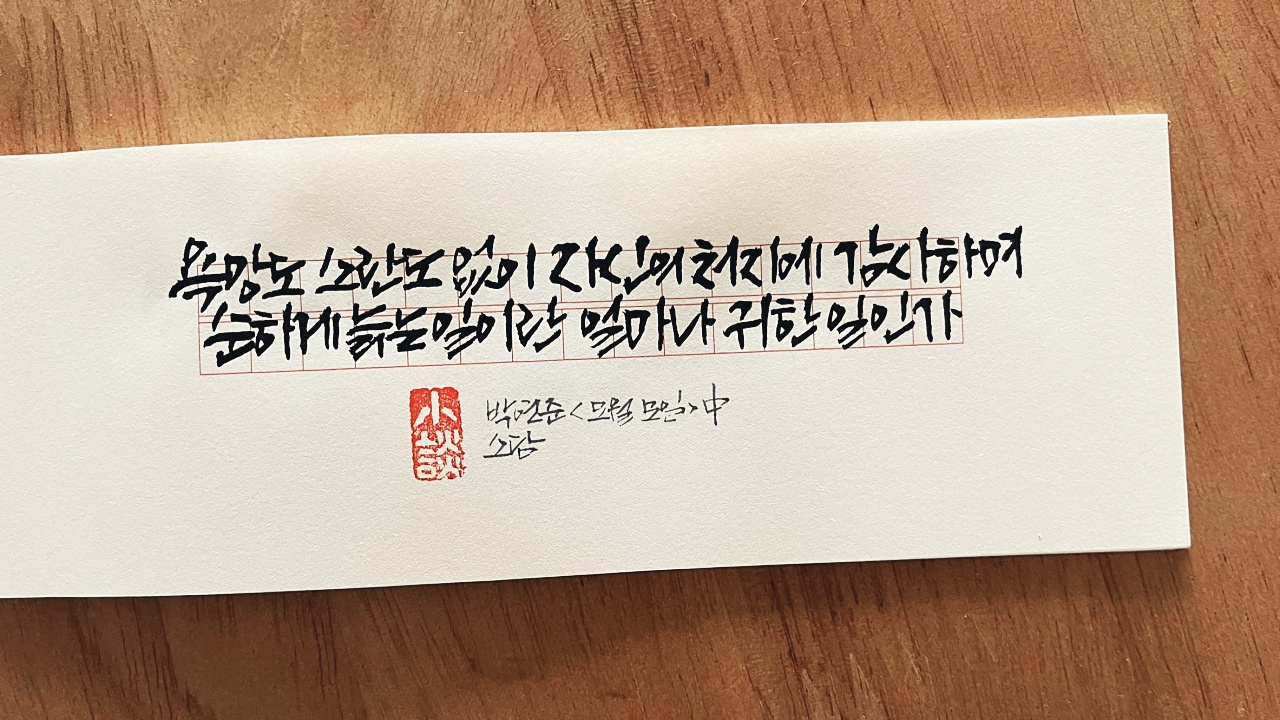 욕망도 소란도 없이 자신의 처지에 감사하며
순하게 늙는 일이란 얼마나 귀한 일인가
小談
박연준 <모월 모일> 中
소담